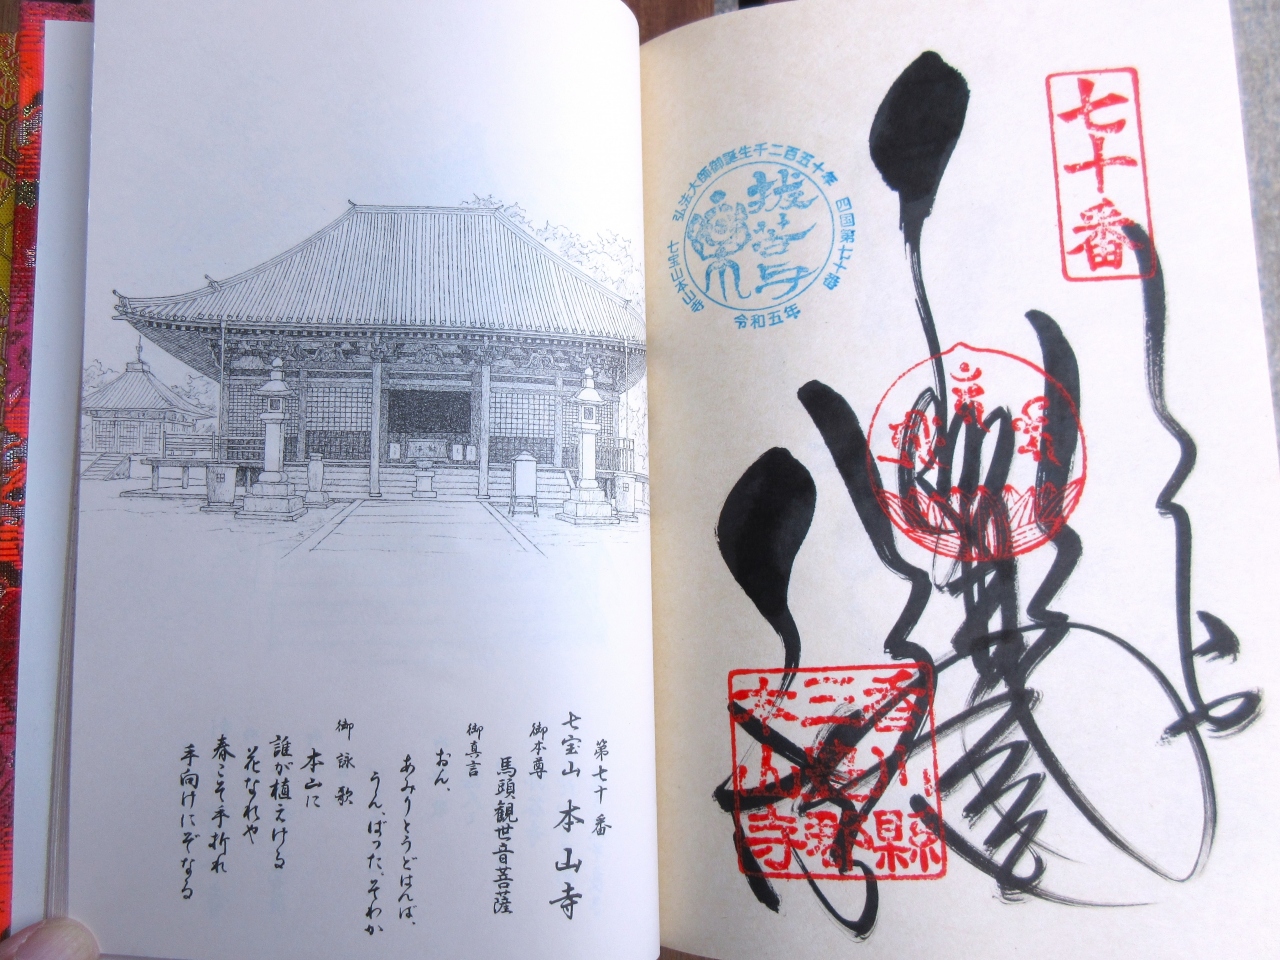 第七十番
七宝山 本山寺
御本尊
馬頭観世音菩薩
御真言
おん、
あみりとうどはんば、
うん、ぱった、そわか
御詠歌
本山に
誰が植えける
花なれや
春こそ手折れ
手向けにぞなる
七十番
弘法大師御誕生千二百五十年
四国第七十番
七宝山本山寺
令和五年
抜苦与楽
香川縣
三豊郡
本山寺